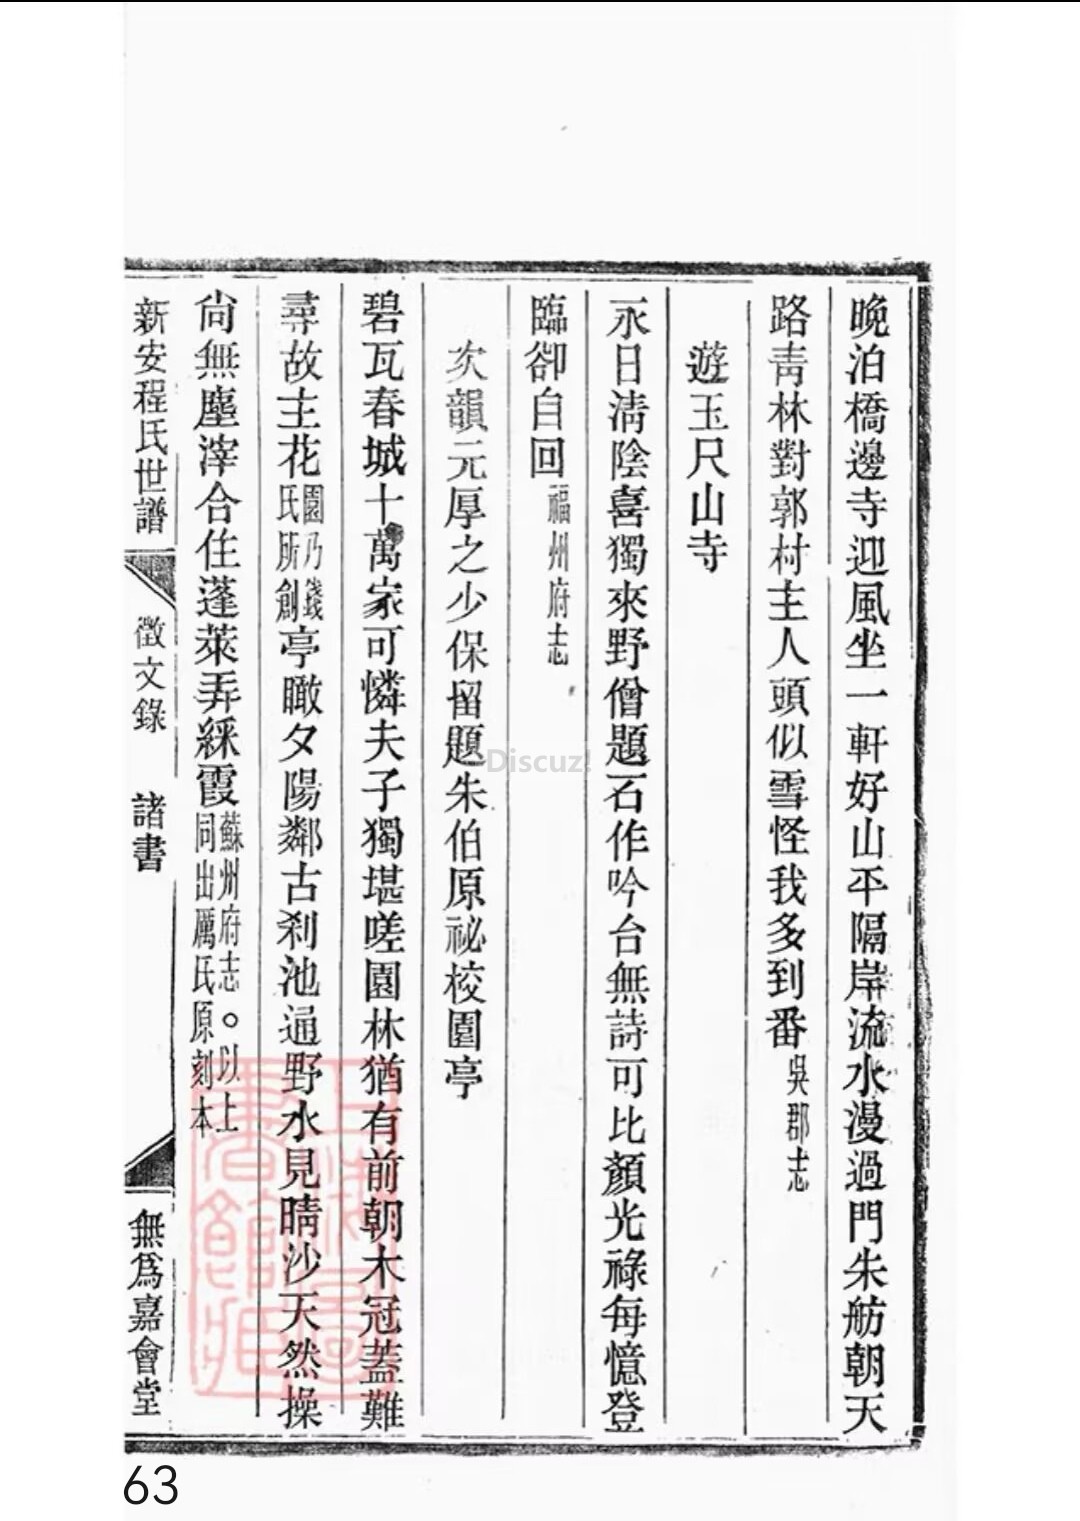 晚泊橋邊寺迎風坐一軒好山平隔岸流水漫過門朱舫朝天
路青林對郭村主人頭似雪怪我多到番吳郡志
遊玉尺山寺
永日清陰喜獨來野僧題石作吟台無詩可比顏光祿每憶登
臨卻自回福州府志
次韻元厚之少保留題朱伯原祕校園亭
碧瓦春城十萬家可憐夫子獨堪嗟園林猶有前朝木冠蓋難
尋故主花園乃錢氏所創亭瞰夕陽鄰古刹池通野水見晴沙天然操
尙無塵滓合住蓬萊弄綵霞蘇州府志。以上同出厲氏原刻本
新安程氏世譜 徵文錄 諸書 無爲嘉會堂
Discuz!
上海圖書館藏
63